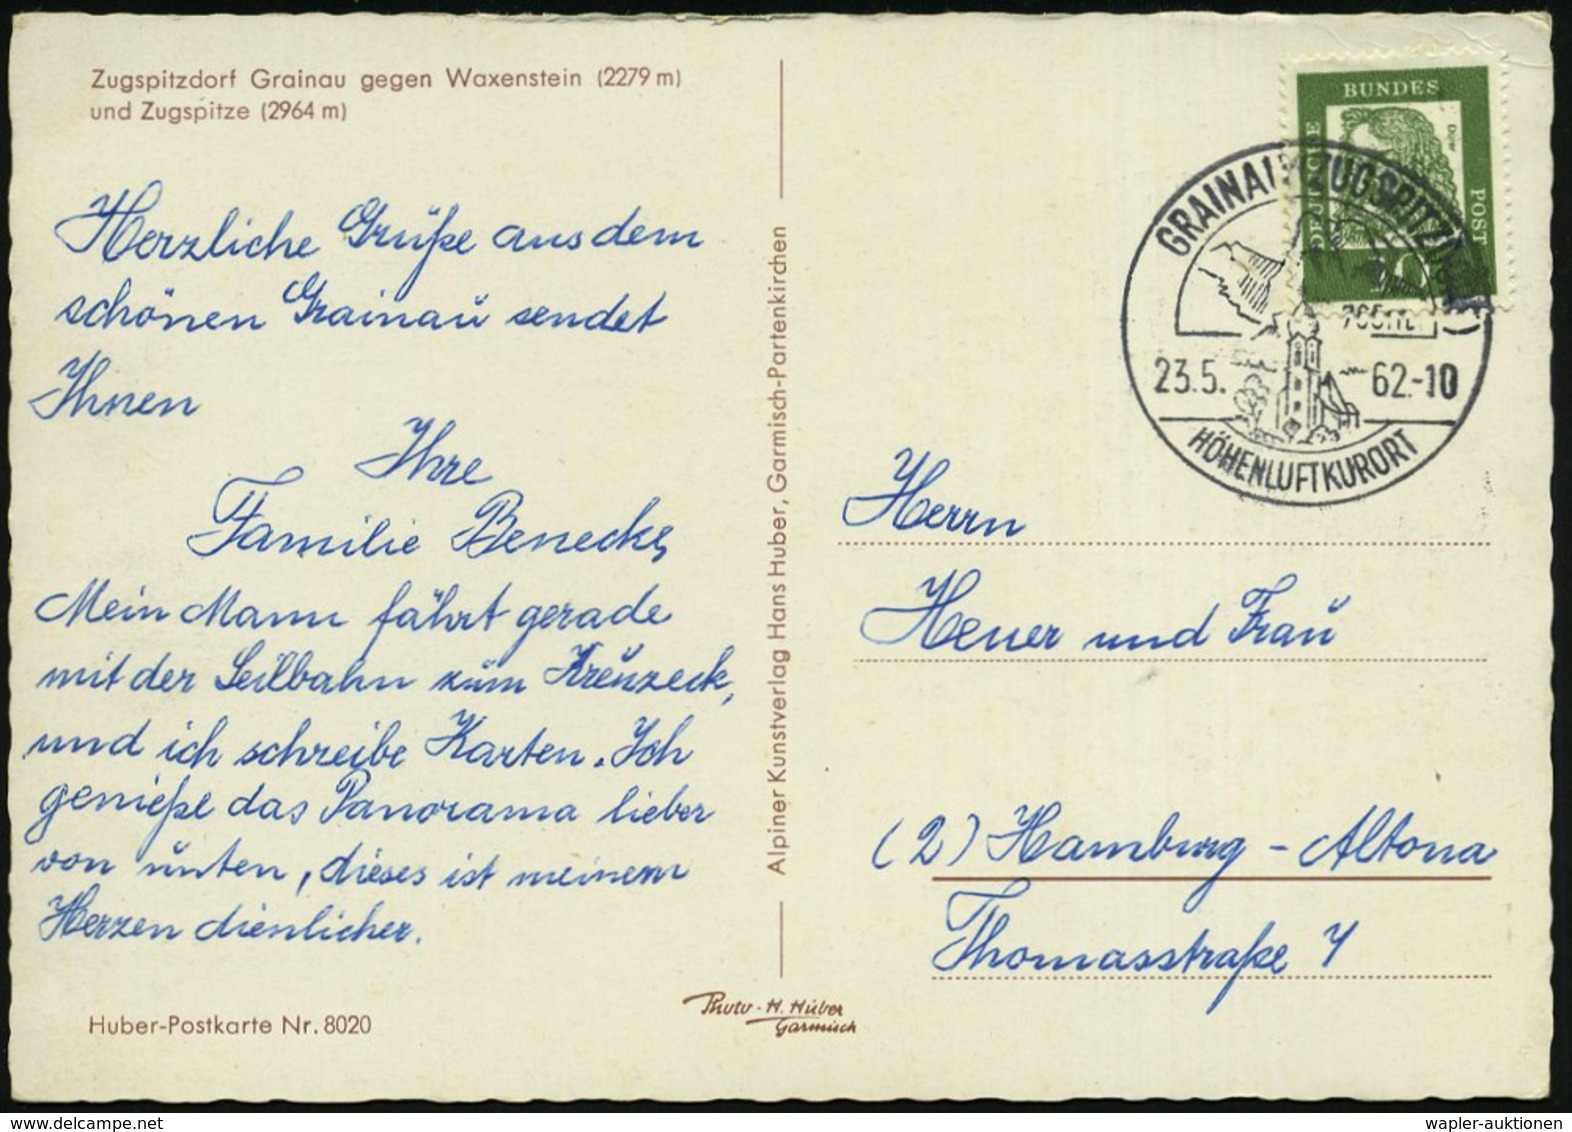 Zugspitzdorf Grainau gegen Waxenstein (2279 m)
und Zugspitze (2964 m)
Herzliche Grüße aus dem
schönen Grainau sendet
Ihnen
Ihre
Familie Benecke
Mein Mann fährt gerade
mit der Seilbahn zum Kreuzeck,
und ich schreibe Karten. Ich
genieße das Panorama lieber
von unten, dieses ist meinem
Herzen dienlicher.
Huber-Postkarte Nr. 8020
Alpiner Kunstverlag Hans Huber, Garmisch-Partenkirchen
Photo-H. Huber
Garmisch
DEUTSCHE
BUNDES
POST
Dürer
10
GRAINAU ZUGSPITZDORF
23.5.
62.-10
HÖHENLUFTKURORT
Herrn
Heuer und Frau
(2) Hamburg - Altona
Thomasstraße
wapler-auktionen